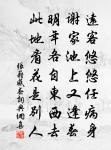 遠客悠悠任病身
謝家池上又逢春
明年各自東西去
此地看花是別人
張籍感春詩詞典網集